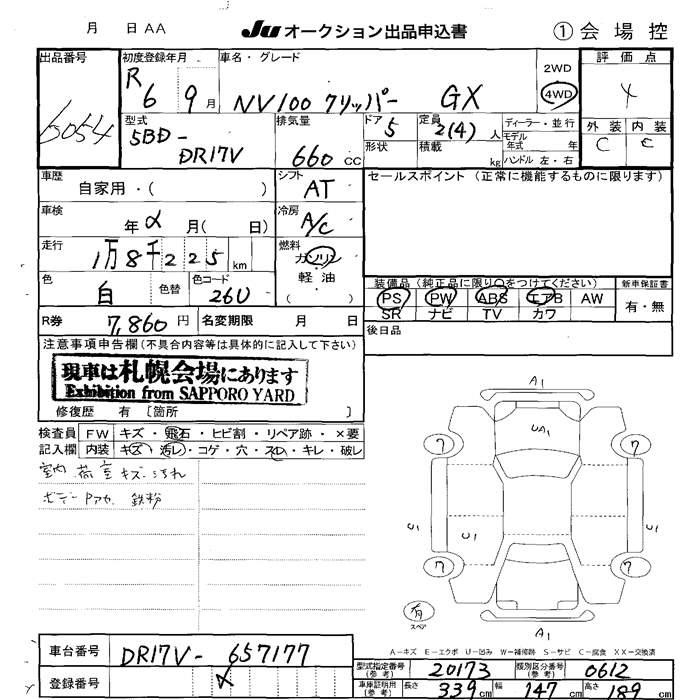 月 日 AA JU オークション出品申込書 ① 会場控
出品番号 初度登録年月 車名・グレード 2WD 評価点
6054 R 6 9月 NV100 クリッパー GX 4WD 4
型式 排気量 ドア 定員 ディーラー・並行 外装 内装
5BD- 5 2(4) 人 モデル年式 年 C C
DR17V 660 CC 形状 積載 kg ハンドル 左・右
車歴 シフト セールスポイント (正常に機能するものに限ります)
自家用・( ) AT
車検 冷房
年 月( 日) A/C
走行 燃料
1万8千225 km ガソリン
色 色替 色コード 軽・油 装備品(純正品に限り○をつけてください) 新車保証書
白 26U ( ) PS PW ABS エアB AW 有・無
R券 7,860円 名変期限 月 日 SR ナビ TV カワ
注意事項申告欄(不具合内容等は具体的に記入して下さい) 後日品
現車は札幌会場にあります
Exhibition from SAPPORO YARD
修復歴 有 〔箇所 〕
A1
検査員 FW キズ・飛石・ヒビ割・リペア跡・×要 UA1
記入欄 内装 キズ・汚レ・コゲ・穴・スレ・キレ・破レ 7 7
室内 荷室キズ・汚れ
ボデー Pアカ 鉄粉
U1 U1 U1
7 7
有 スペア
A1
A-キズ E-エクボ U-凹み W-補修跡 S-サビ C-腐食 XX-交換済
車台番号 DR17V-657177 型式指定番号(参考) 20173 類別区分番号(参考) 0612
登録番号 車庫証明用(参考) 長さ 339cm 幅 147cm 高さ 189cm